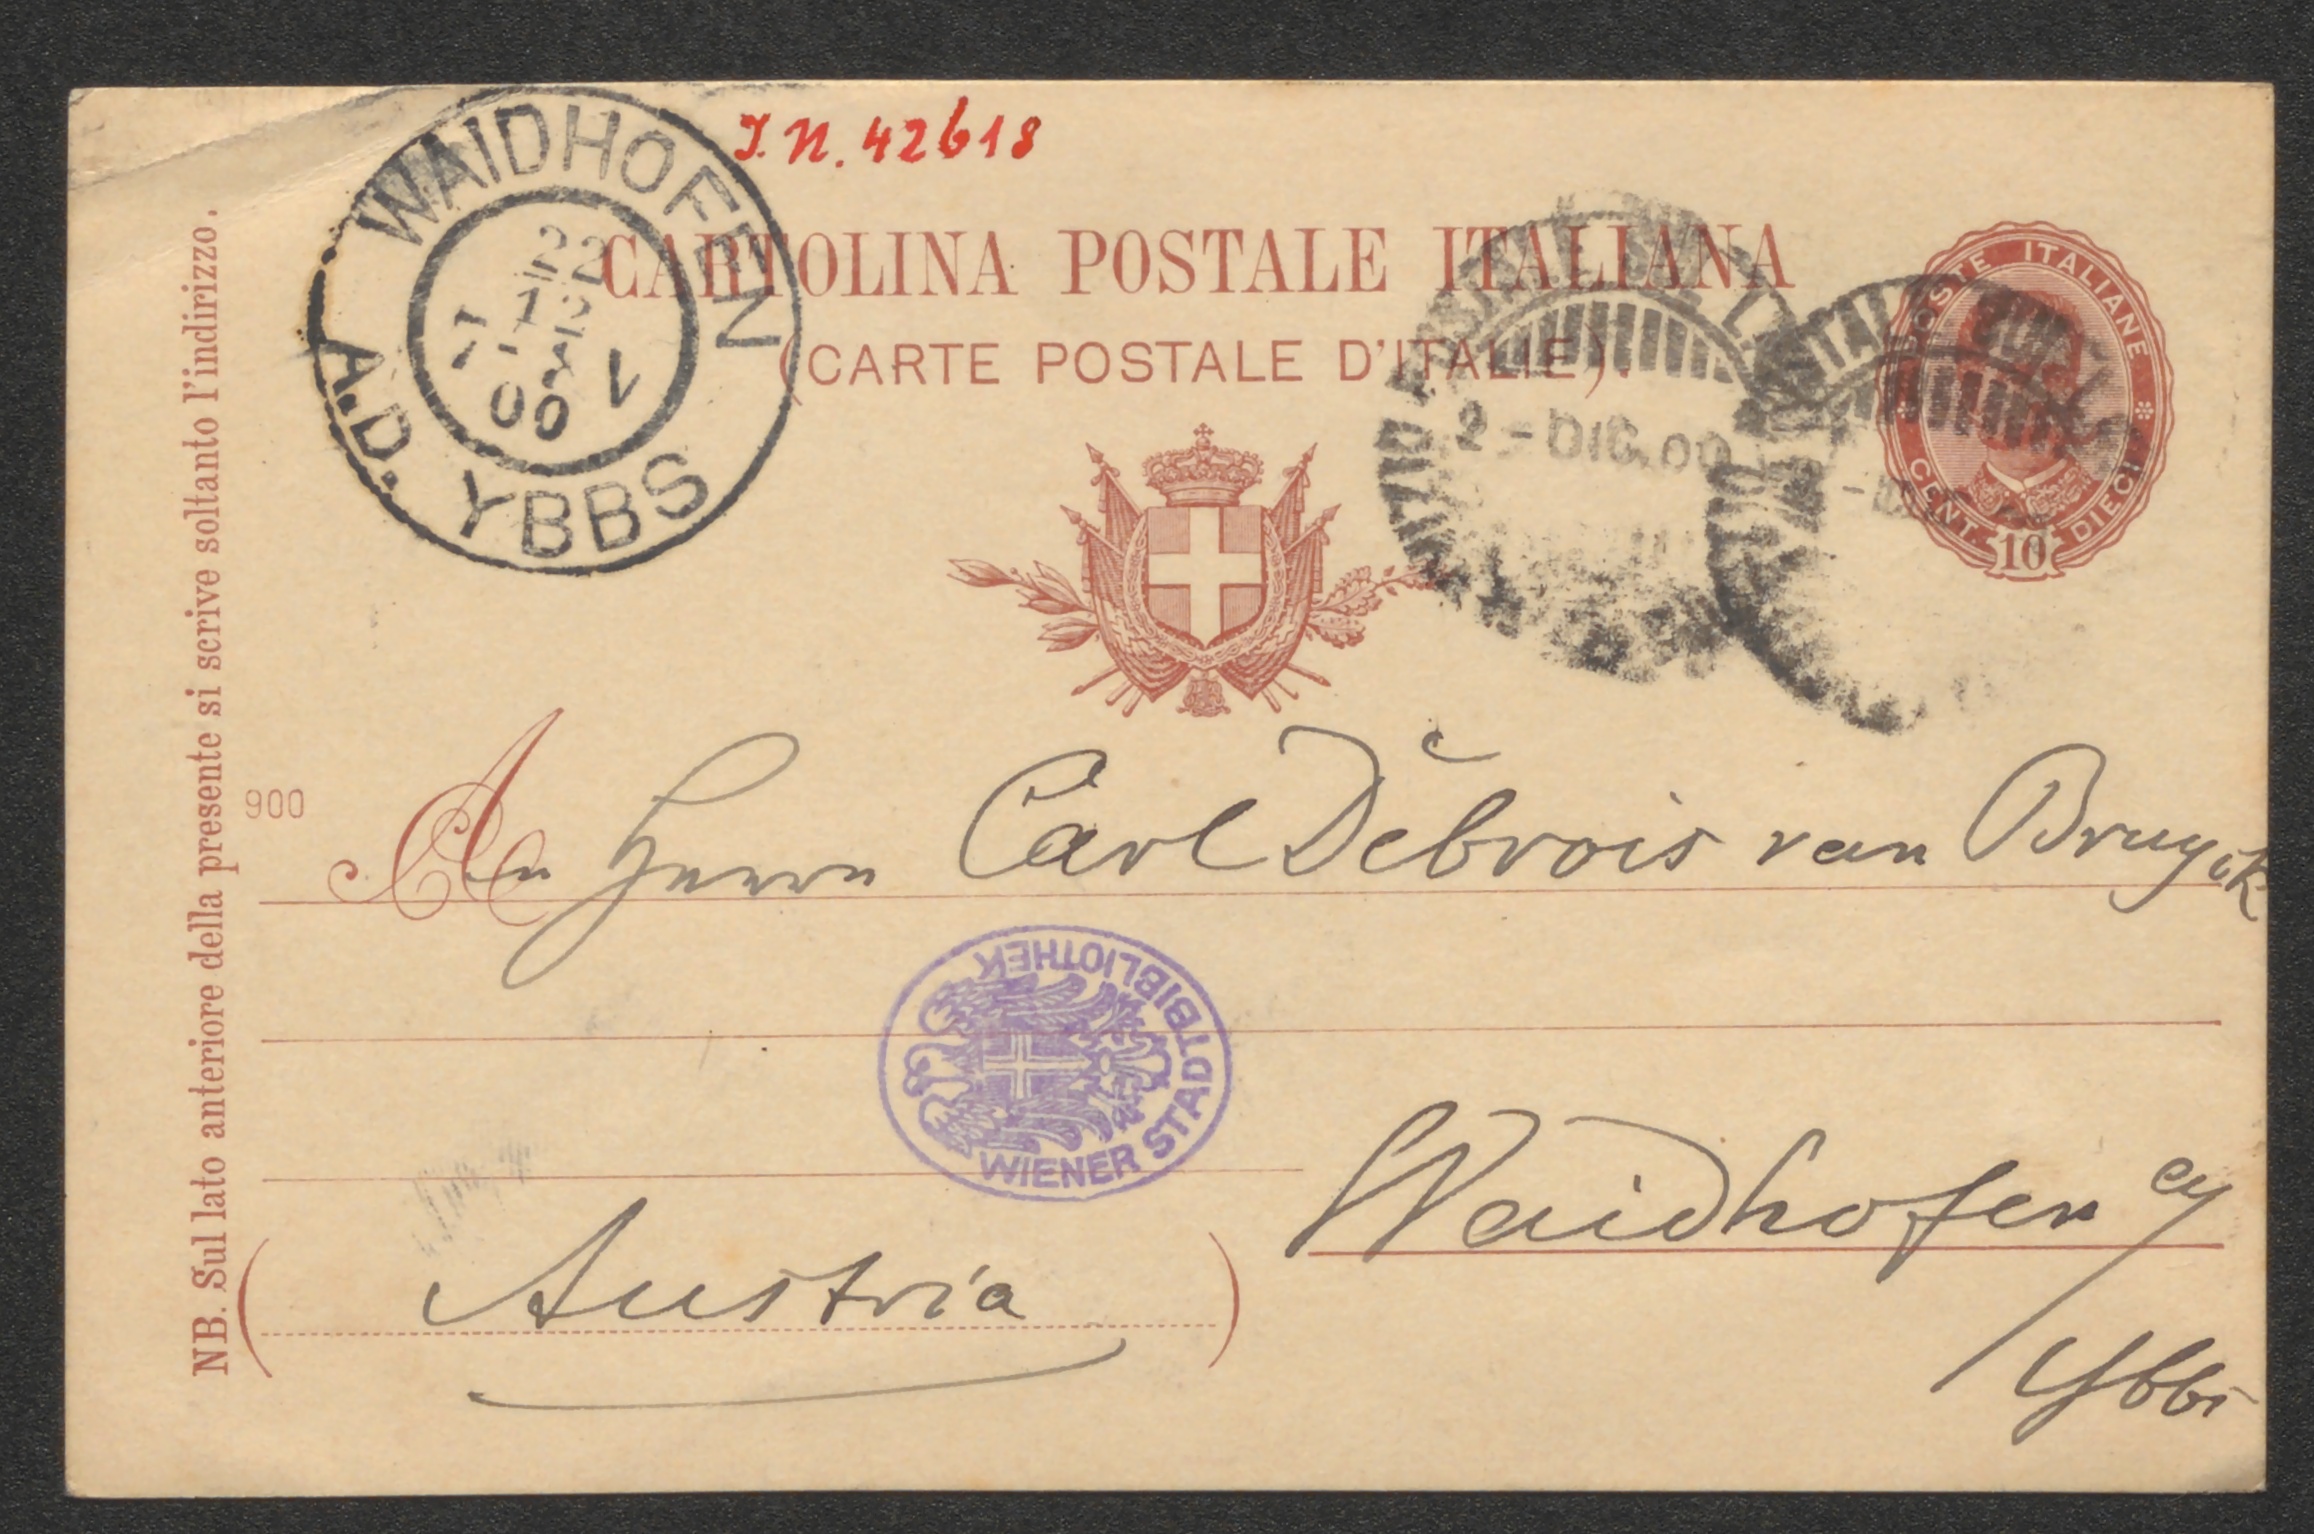 I. N. 42618
WAIDHOFEN
A.D. YBBS
22
12
00
CARTOLINA POSTALE ITALIANA
(CARTE POSTALE D'ITALIE).
2-DIC.00
POSTE ITALIANE
CENT. 10 DIECI
NB. Sul lato anteriore della presente si scrive soltanto l'indirizzo.
900
An Herrn Carl Debrois van Bruyck
WIENER STADTBIBLIOTHEK
Waidhofen
Ybbs
Austria